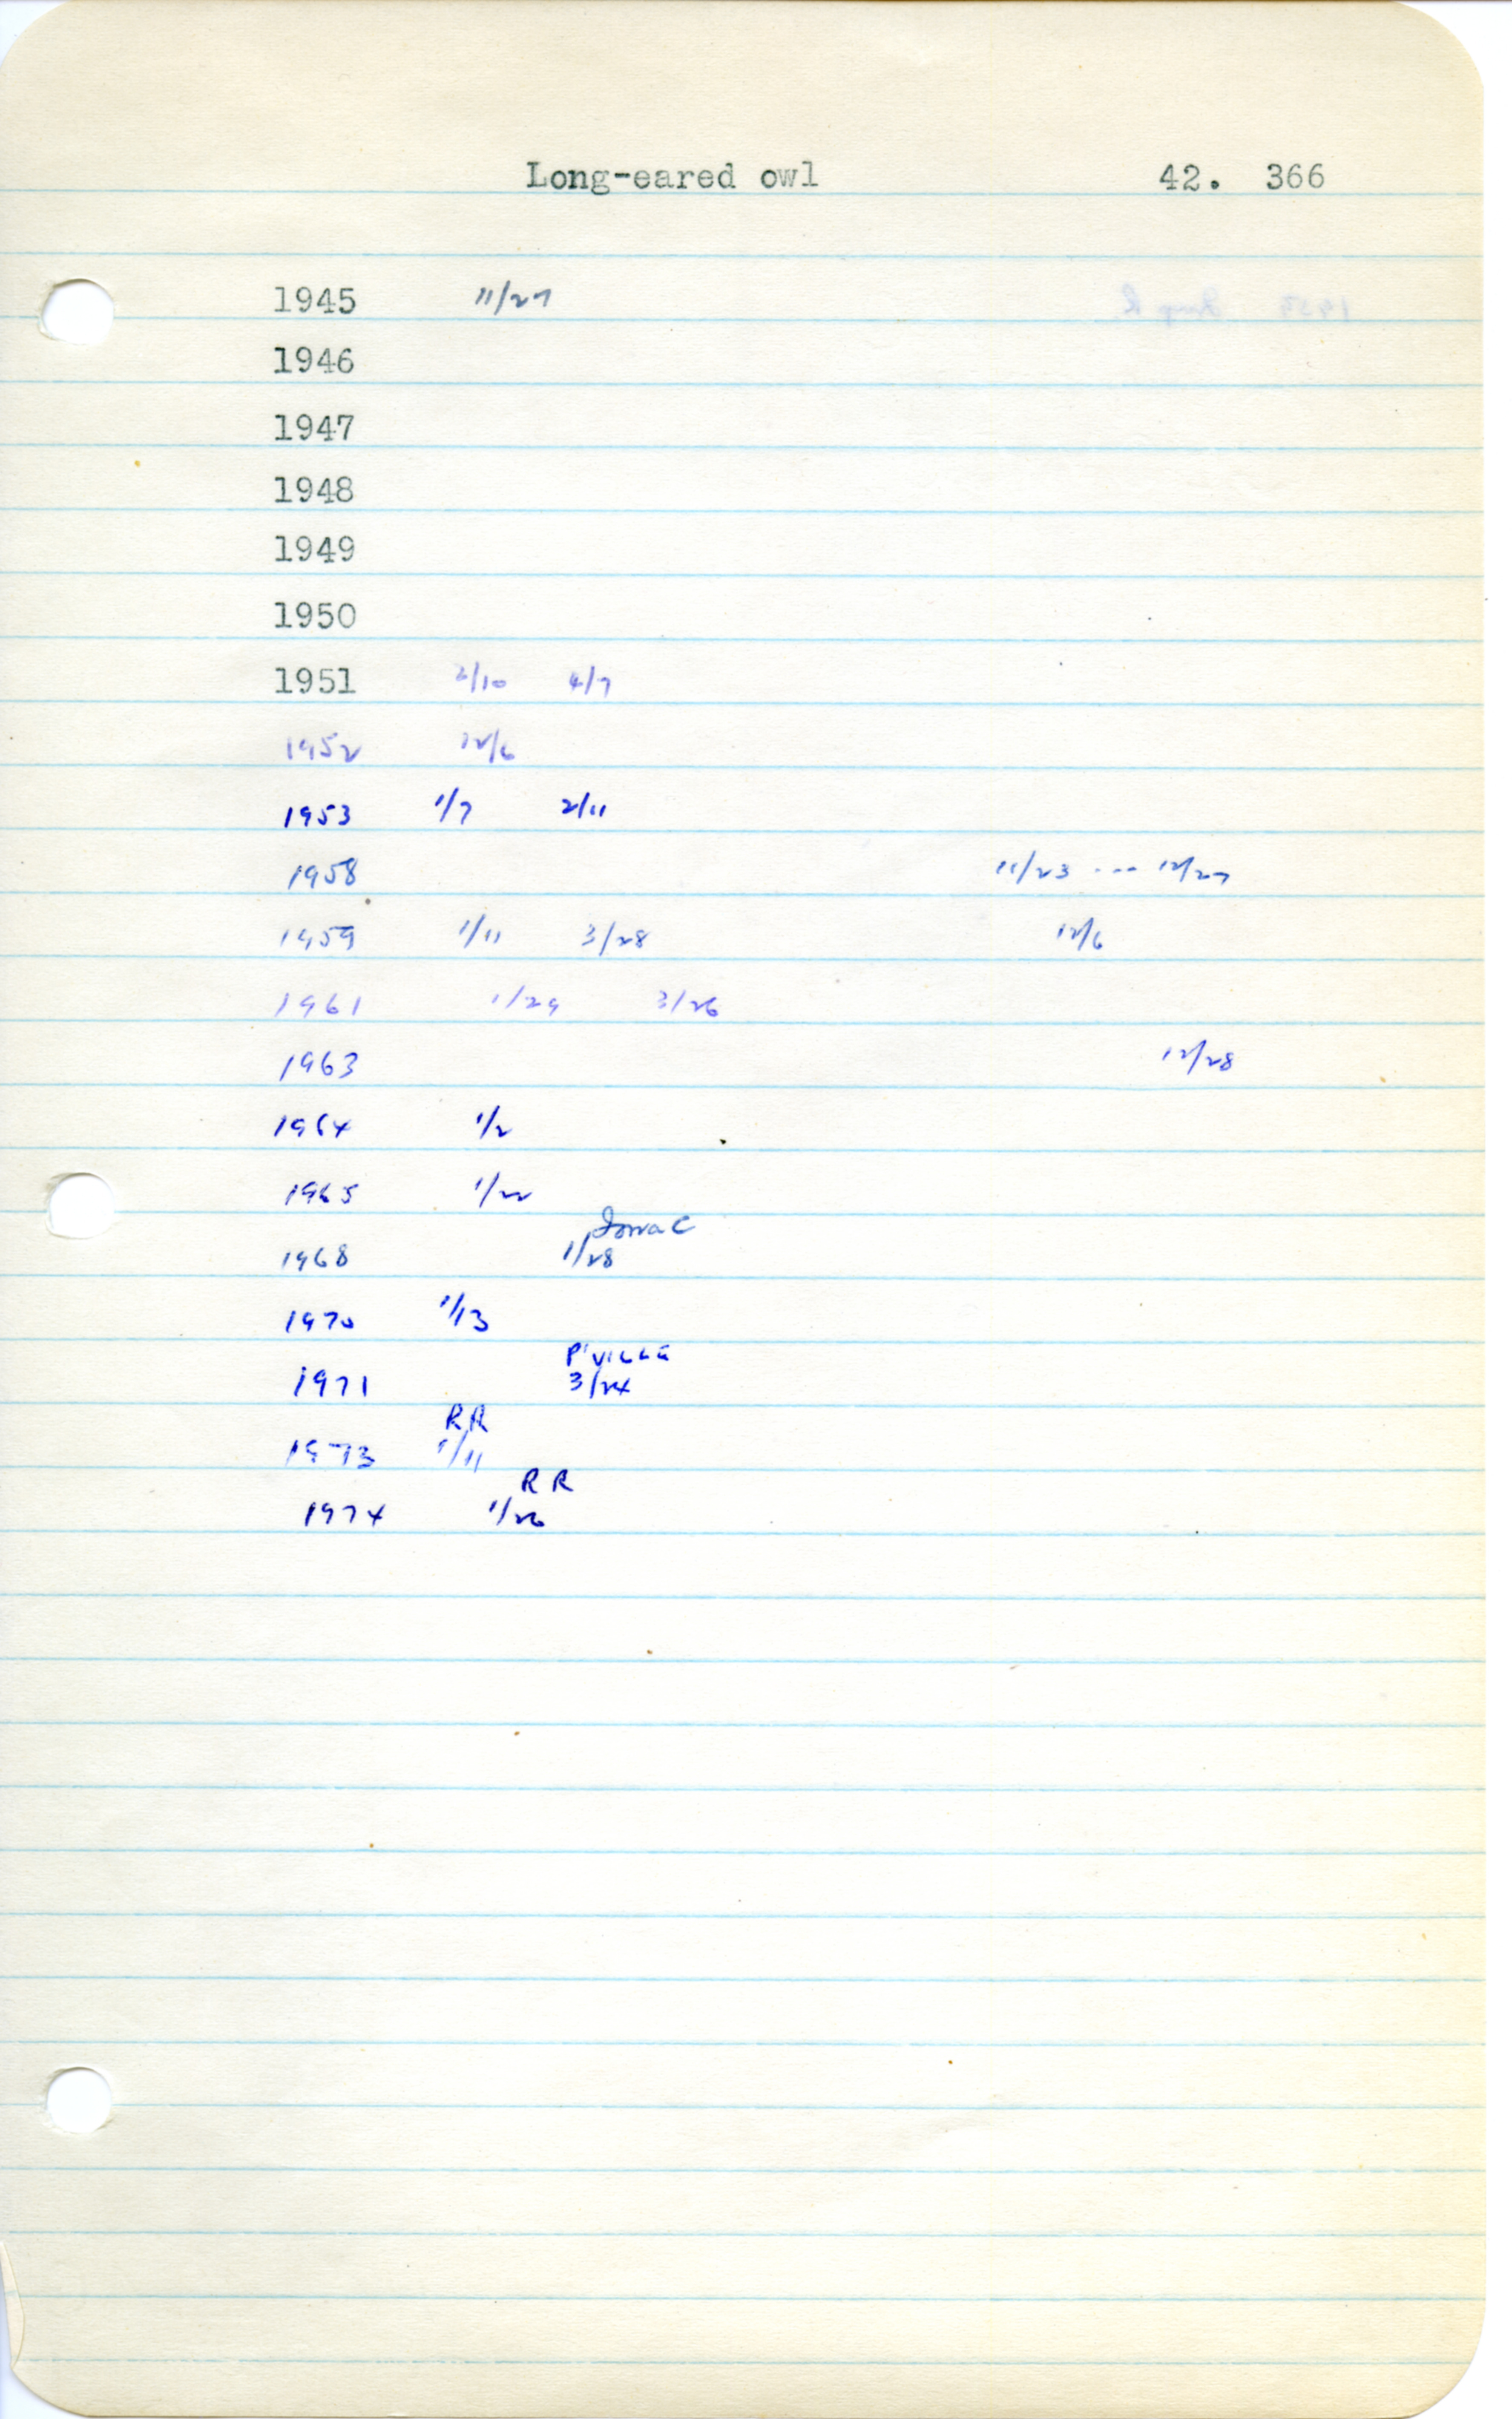 Long-eared owl 42. 366
1945 11/27
1946
1947
1948
1949
1950
1951 2/10 4/7
1952 12/6
1953 1/7 2/11
1958 11/23 --- 12/27
1959 1/11 3/28 12/6
1961 1/29 3/26
1963 12/28
1964 1/2
1965 1/22
Iowa C
1968 1/28
1970 1/13
P'VILLE
1971 3/24
RR
1973 1/11
RR
1974 1/26